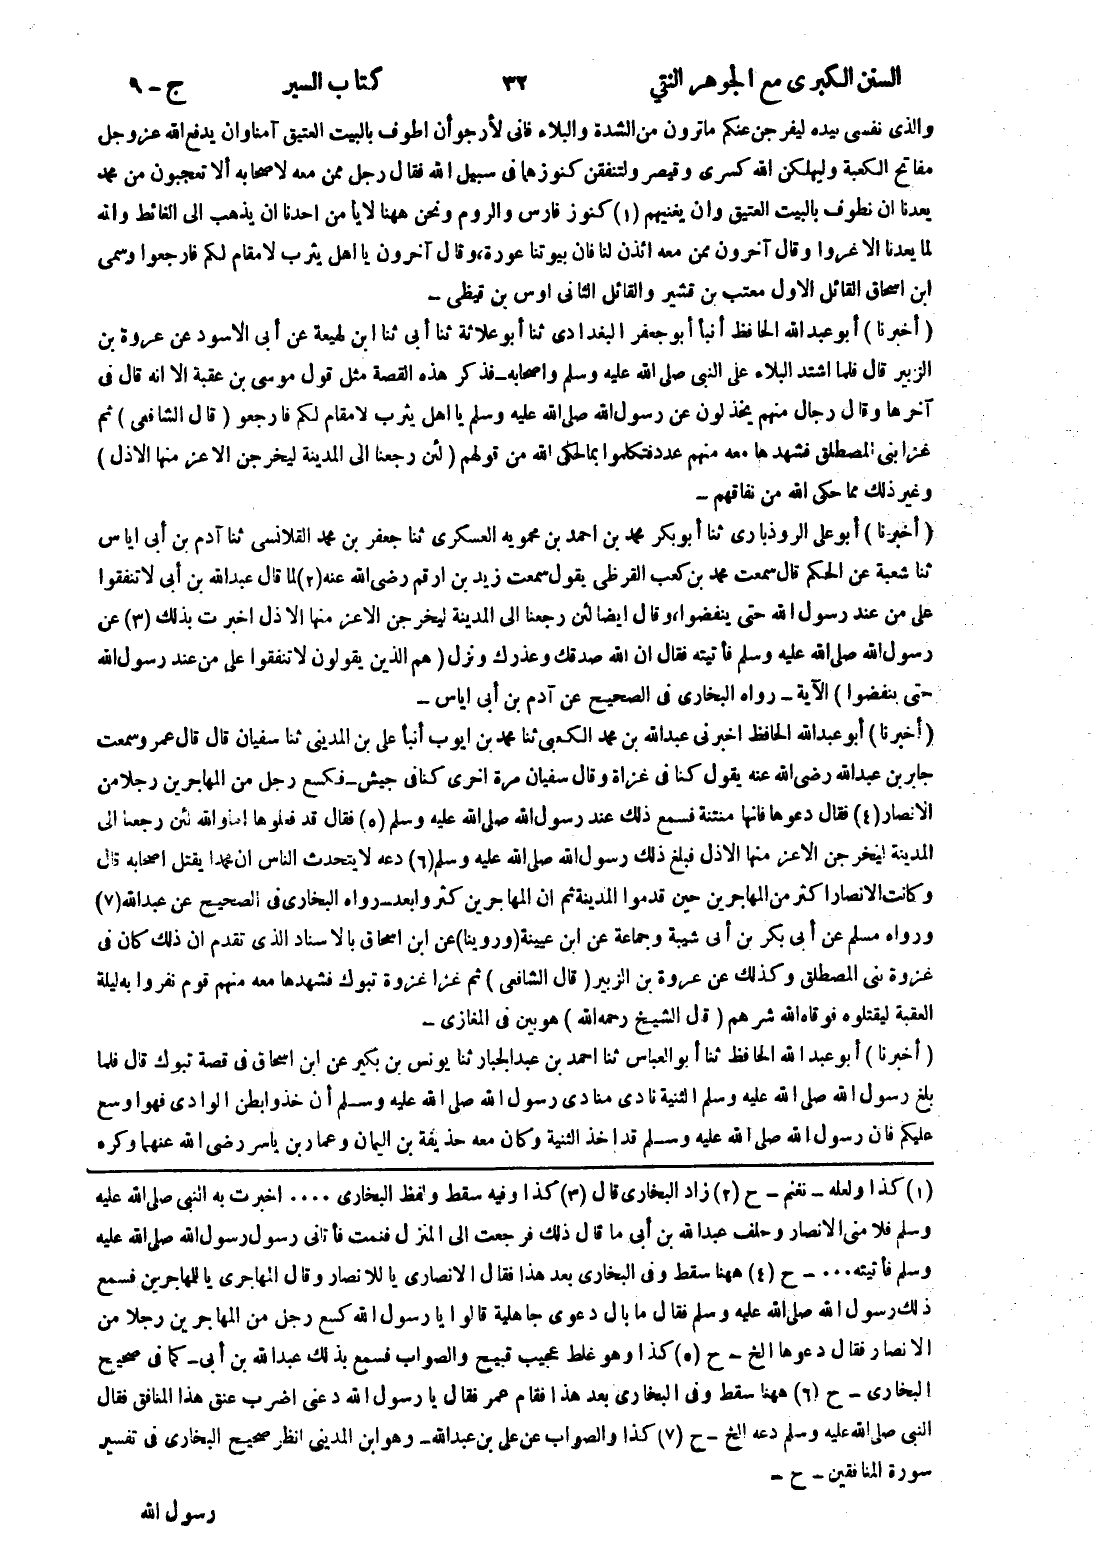 السنن الكبرى مع الجوهر النقي ٣٢ كتاب السير ج - ٩
والذى نفسى بيده ليفرجن عنكم ماترون من الشدة والبلاء فانى لأرجو أن اطوف بالبيت العتيق آمنا وان يدفع الله عزوجل
مفاتح الكعبة وليهلكن الله كسرى وقيصر ولتنفقن كنوزهما فى سبيل الله فقال رجل ممن معه لاصحابه ألا تعجبون من محمد
يعدنا ان نطوف بالبيت العتيق وان يغنيهم (١) كنوز فارس والروم ونحن ههنا لا يأمن احدنا ان يذهب الى الغائط والله
لما يعدنا الا غروا وقال آخرون ممن معه ائذن لنا فان بيوتنا عورة، وقال آخرون يا اهل يثرب لامقام لكم فارجعوا وسمى
ابن اسحاق القائل الاول معتب بن قشير والقائل الثانى اوس بن قيظى -
( أخبرنا ) أبو عبد الله الحافظ أنبأ أبو جعفر البغدادى ثنا أبو علاثة ثنا أبى ثنا ابن لهيعة عن أبى الاسود عن عروة بن
الزبير قال فلما اشتد البلاء على النبى صلى الله عليه وسلم واصحابه - فذكر هذه القصة مثل قول موسى بن عقبة الا انه قال فى
آخرها وقال رجال منهم يخذلون عن رسول الله صلى الله عليه وسلم يا اهل يثرب لامقام لكم فارجعو ( قال الشافعى ) ثم
غزا بنى المصطلق فشهدها معه منهم عدد فتكلموا بما حكى الله من قولهم ( لئن رجعنا الى المدينة ليخرجن الاعز منها الاذل )
وغير ذلك مما حكى الله من نفاقهم -
( أخبرنا ) أبو على الروذبارى ثنا أبوبكر محمد بن احمد بن محمويه العسكرى ثنا جعفر بن محمد القلانسى ثنا آدم بن أبى اياس
ثنا شعبة عن الحكم قال سمعت محمد بن كعب القرظى يقول سمعت زيد بن ارقم رضى الله عنه (٢) لما قال عبد الله بن أبى لا تنفقوا
على من عند رسول الله حتى ينفضوا، وقال ايضا لئن رجعنا الى المدينة ليخرجن الاعز منها الاذل اخبرت بذلك (٣) عن
رسول الله صلى الله عليه وسلم فأتيته فقال ان الله صدقك وعذرك ونزل ( هم الذين يقولون لا تنفقوا على من عند رسول الله
حتى ينفضوا ) الآية - رواه البخارى فى الصحيح عن آدم بن أبى اياس -
( أخبرنا ) أبو عبد الله الحافظ اخبرنى عبد الله بن محمد الكعبى ثنا محمد بن ايوب أنبأ على بن المدينى ثنا سفيان قال قال عمر وسمعت
جابر بن عبد الله رضى الله عنه يقول كنا فى غزاة وقال سفيان مرة اخرى كنا فى جيش - فكسع رجل من المهاجرين رجلا من
الانصار (٤) فقال دعوها فانها منتنة فسمع ذلك عند رسول الله صلى الله عليه وسلم (٥) فقال قد فعلوها اما والله لئن رجعنا الى
المدينة ليخرجن الاعز منها الاذل فبلغ ذلك رسول الله صلى الله عليه وسلم (٦) دعه لا يتحدث الناس ان محمدا يقتل اصحابه قال
وكانت الانصار اكثر من المهاجرين حين قدموا المدينة ثم ان المهاجرين كثروا بعد - رواه البخارى فى الصحيح عن عبد الله (٧)
ورواه مسلم عن أبى بكر بن أبى شيبة وجماعة عن ابن عيينة (وروينا) عن ابن اسحاق بالاسناد الذى تقدم ان ذلك كان فى
غزوة بنى المصطلق وكذلك عن عروة بن الزبير ( قال الشافعى ) ثم غزا غزوة تبوك فشهدها معه منهم قوم نفروا به ليلة
العقبة ليقتلوه فوقاه الله شرهم ( قال الشيخ رحمه الله ) هو بين فى المغازى -
( أخبرنا ) أبو عبد الله الحافظ ثنا أبو العباس ثنا احمد بن عبد الجبار ثنا يونس بن بكير عن ابن اسحاق فى قصة تبوك قال فلما
بلغ رسول الله صلى الله عليه وسلم الثنية نادى منادى رسول الله صلى الله عليه وسلم أن خذوا بطن الوادى فهو اوسع
عليكم فان رسول الله صلى الله عليه وسلم قد اخذ الثنية وكان معه حذيفة بن اليمان وعمار بن ياسر رضى الله عنهما وكره
(١) كذا ولعله - نغنم - ح (٢) زاد البخارى قال (٣) كذا وفيه سقط ولفظ البخارى .... اخبرت به النبى صلى الله عليه
وسلم فلامنى الانصار وحلف عبد الله بن أبى ما قال ذلك فرجعت الى المنزل فنمت فأتانى رسول رسول الله صلى الله عليه
وسلم فأتيته ... - ح (٤) ههنا سقط وفى البخارى بعد هذا فقال الانصارى يا للانصار وقال المهاجرى يا للمهاجرين فسمع
ذلك رسول الله صلى الله عليه وسلم فقال ما بال دعوى جاهلية قالوا يا رسول الله كسع رجل من المهاجرين رجلا من
الانصار فقال دعوها الخ - ح (٥) كذا وهو غلط عجيب قبيح والصواب فسمع بذلك عبد الله بن أبى - كما فى صحيح
البخارى - ح (٦) ههنا سقط وفى البخارى بعد هذا فقام عمر فقال يا رسول الله دعنى اضرب عنق هذا المنافق فقال
النبى صلى الله عليه وسلم دعه الخ - ح (٧) كذا والصواب عن على بن عبد الله - وهو ابن المدينى انظر صحيح البخارى فى تفسير
سورة المنافقين - ح -
رسول الله